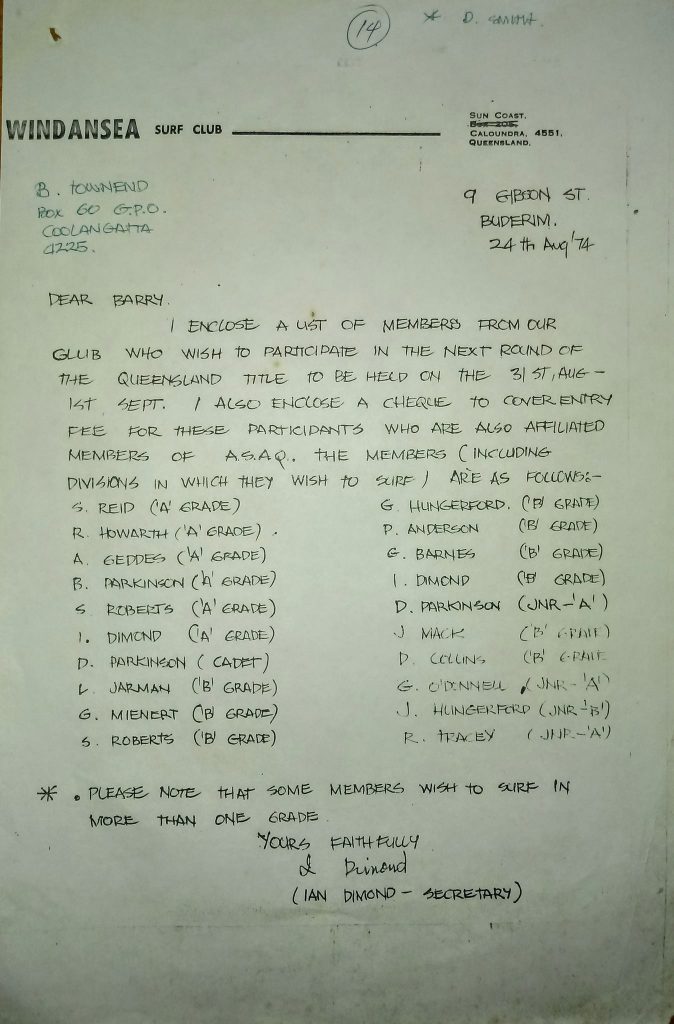 14 * D. SMITH.
WINDANSEA SURF CLUB
SUN COAST.
BOX 205,
CALOUNDRA, 4551,
QUEENSLAND.
B. TOWNEND
BOX 60 G.P.O.
COOLANGATTA
4225.
9 GIBSON ST.
BUDERIM.
24 th Aug '74
DEAR BARRY.
I ENCLOSE A LIST OF MEMBERS FROM OUR
CLUB WHO WISH TO PARTICIPATE IN THE NEXT ROUND OF
THE QUEENSLAND TITLE TO BE HELD ON THE 31 ST, AUG -
1ST SEPT. I ALSO ENCLOSE A CHEQUE TO COVER ENTRY
FEE FOR THESE PARTICIPANTS WHO ARE ALSO AFFILIATED
MEMBERS OF A.S.A.Q. THE MEMBERS (INCLUDING
DIVISIONS IN WHICH THEY WISH TO SURF) ARE AS FOLLOWS:-
S. REID ('A' GRADE)
R. HOWARTH ('A' GRADE).
A. GEDDES ('A' GRADE)
B. PARKINSON ('A' GRADE)
S. ROBERTS ('A' GRADE)
I. DIMOND ('A' GRADE)
D. PARKINSON (CADET)
L. JARMAN ('B' GRADE)
G. MIENERT ('B' GRADE)
S. ROBERTS ('B' GRADE)
G. HUNGERFORD. ('B' GRADE)
P. ANDERSON ('B' GRADE)
G. BARNES ('B' GRADE)
I. DIMOND ('B' GRADE)
D. PARKINSON (JNR-'A')
J MACK ('B' GRADE)
D. COLLINS ('B' GRADE
G. O'DONNELL (JNR-'A')
J. HUNGERFORD (JNR-'B')
R. TRACEY (JNR-'A')
* . PLEASE NOTE THAT SOME MEMBERS WISH TO SURF IN
MORE THAN ONE GRADE.
YOURS FAITHFULLY
I Dimond
(IAN DIMOND - SECRETARY)